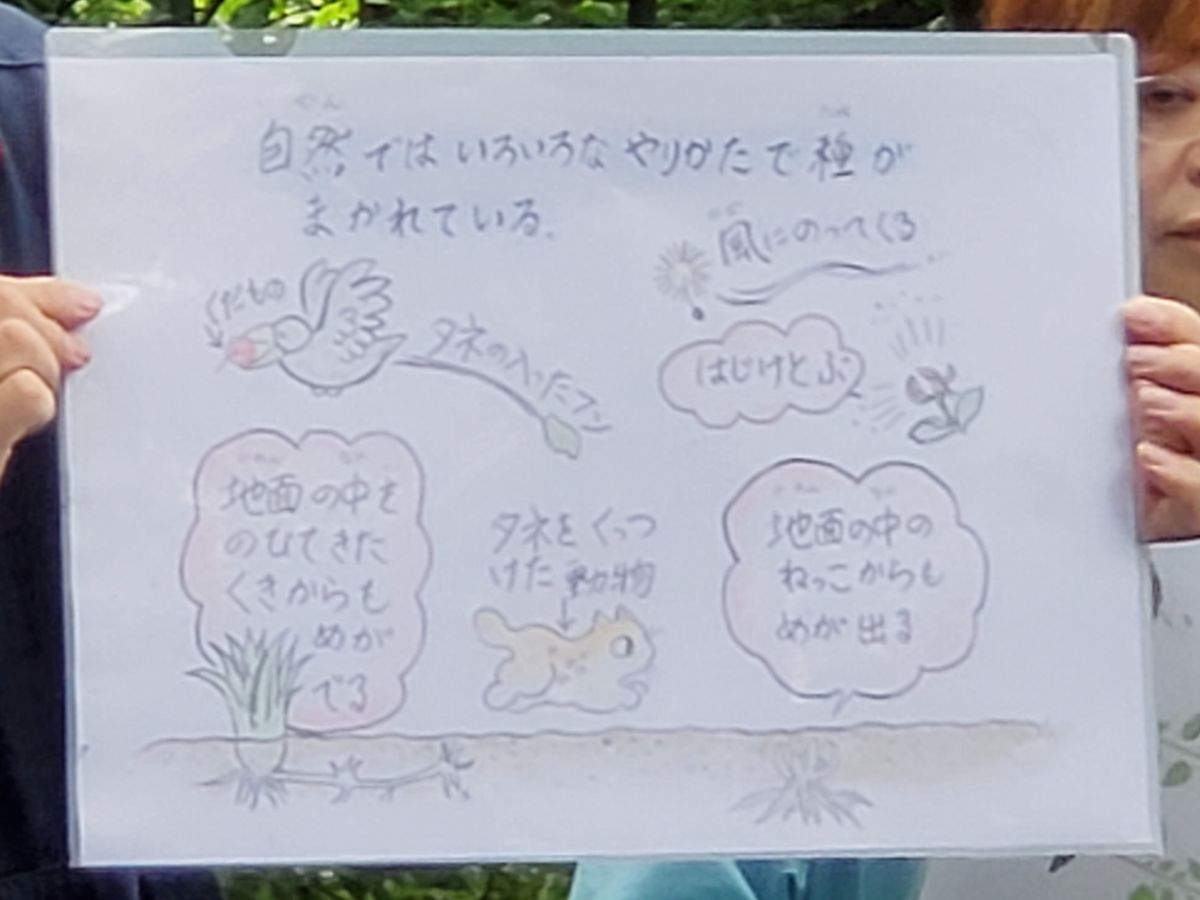 自然ではいろいろなやりかたで種が
まかれている.
風にのってくる
くだもの
タネの入ったフン
はじけとぶ
地面の中を
のびてきた
くきからも
めが
でる
タネをくっつ
けた動物
地面の中の
ねっこからも
めが出る